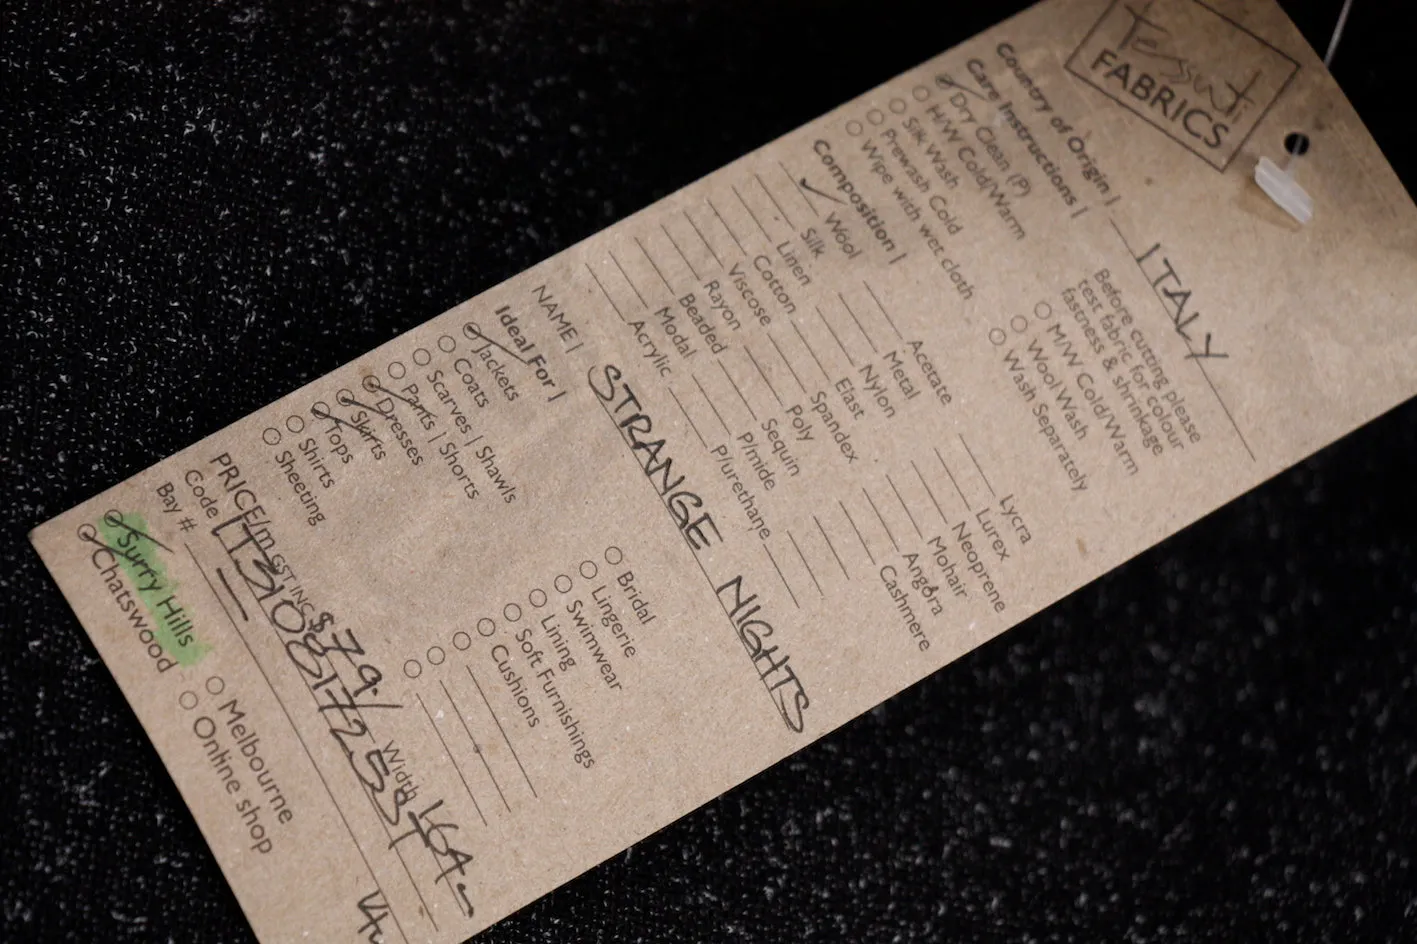 Tessuti
FABRICS
Country of Origin | ITALY
Care Instructions |
Dry Clean (P)
H/W Cold/Warm
Silk Wash
Prewash Cold
Wipe with wet cloth
Before cutting please
test fabric for colour
fastness & shrinkage
M/W Cold/Warm
Wool Wash
Wash Separately
Composition |
Wool
Silk
Linen
Cotton
Viscose
Rayon
Beaded
Modal
Acrylic
Acetate
Metal
Nylon
Elast
Spandex
Poly
Sequin
P/mide
P/urethane
Lycra
Lurex
Neoprene
Mohair
Angora
Cashmere
NAME | STRANGE NIGHTS
Ideal For |
Jackets
Coats
Scarves | Shawls
Pants | Shorts
Dresses
Skirts
Tops
Shirts
Sheeting
Bridal
Lingerie
Swimwear
Lining
Soft Furnishings
Cushions
PRICE/m GST INC $79/ Width 164
Code |
Bay #
Surry Hills
Chatswood
Melbourne
Online shop